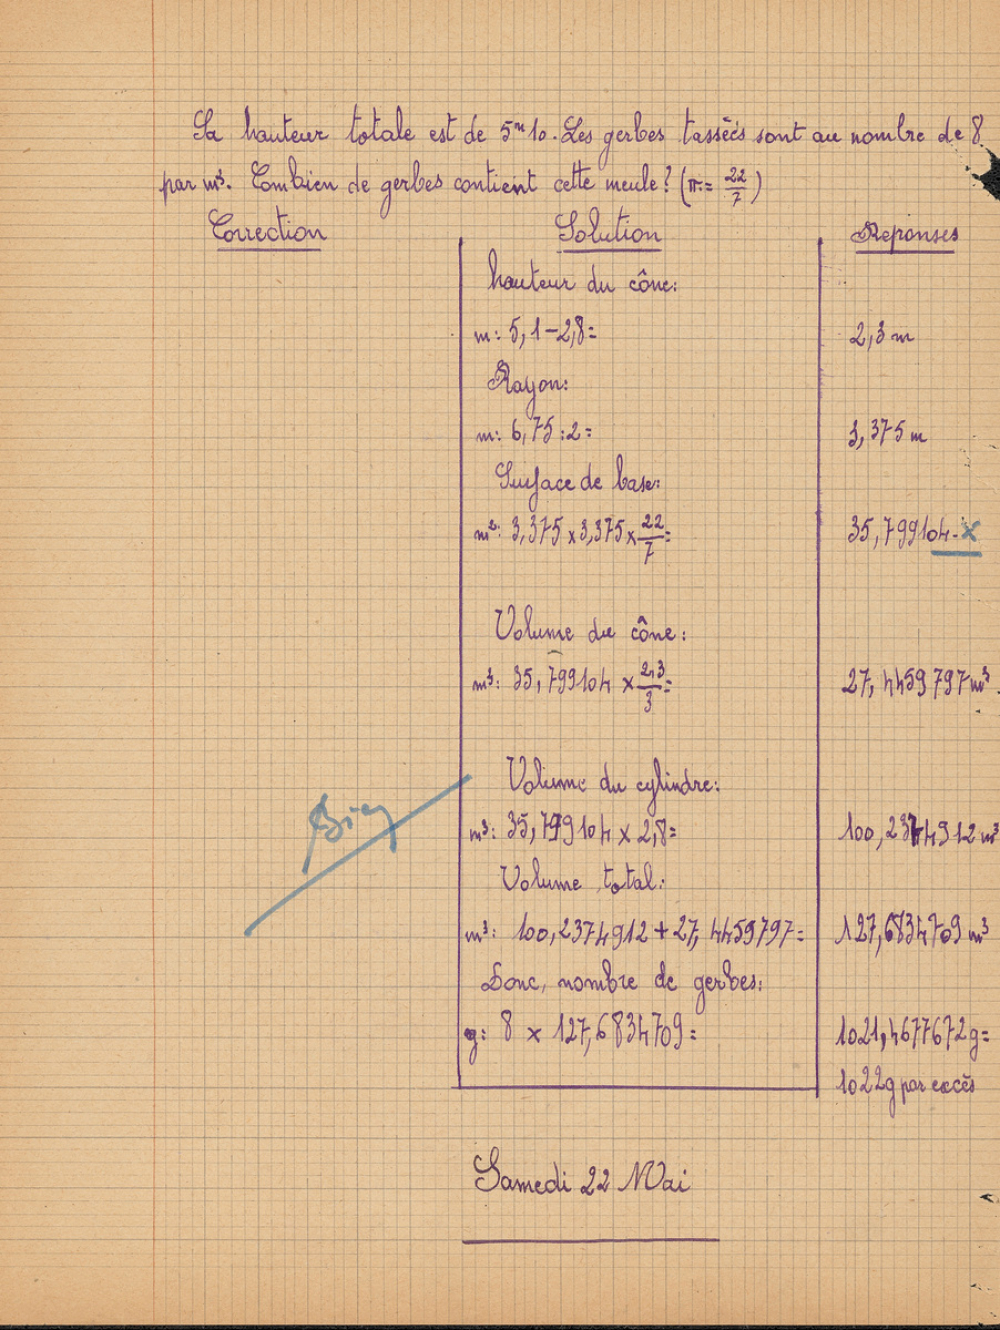 Sa hauteur totale est de 5ᵐ10. Les gerbes tassées sont au nombre de 8
par m³. Combien de gerbes contient cette meule? (π= 22/7)
Correction Solution Réponses
hauteur du cône:
m: 5,1-2,8= 2,3 m
Rayon:
m: 6,75:2= 3,375 m
Surface de base:
m²: 3,375 x 3,375 x 22/7= 35,799104-x
Volume du cône:
m³: 35,799104 x 2,3/3= 27,4459797 m³.
Volume du cylindre:
Bien
m³: 35,799104 x 2,8= 100,2374912 m³
Volume total:
m³: 100,2374912 + 27,4459797= 127,6834709 m³
Donc, nombre de gerbes:
g: 8 x 127,6834709= 1021,4677672g=
1022g par excès
Samedi 22 Mai